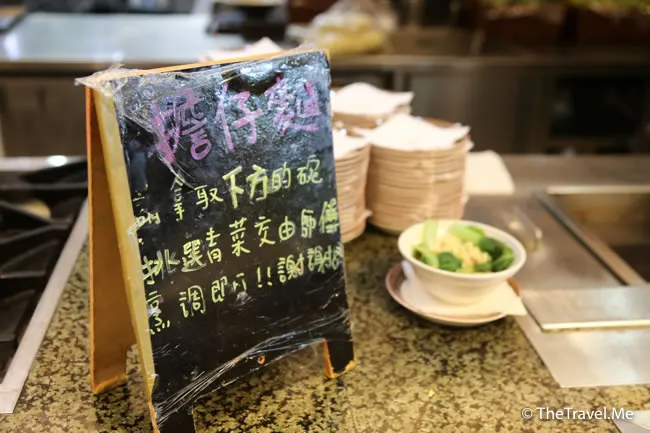 擔仔麵
請拿取下方的碗
挑選青菜交由師傅
烹調即可!!謝謝
© TheTravel.Me